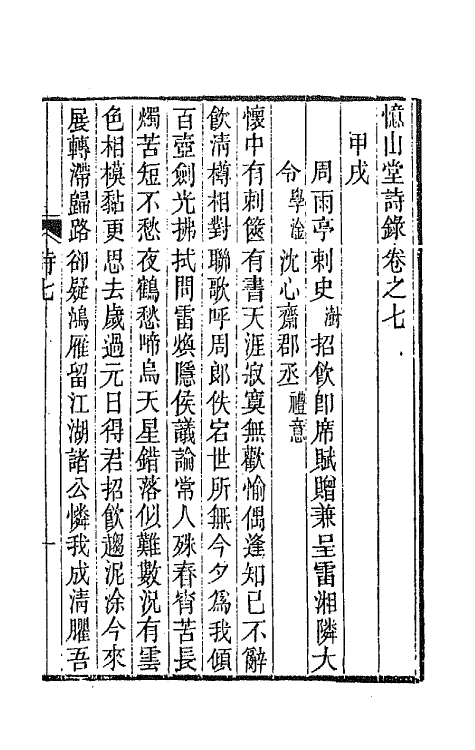 憶山堂詩錄卷之七
甲戌
周雨亭刺史澍招飲即席賦贈兼呈雷湘隣大
令學淦沈心齋郡丞禮意
懷中有刺篋有書天涯寂寞無歡愉偶逢知已不辭
飲淸樽相對聯歌呼周郎佚宕世所無今夕爲我傾
百壺劍光拂拭問雷煥隱侯議論常人殊春宵苦長
燭苦短不愁夜鶴愁啼烏天星錯落似難數況有雲
色相模黏更思去歲過元日得君招飲趨泥涂今來
展轉滯歸路卻疑鴻雁留江湖諸公憐我成淸臞吾
詩七
一